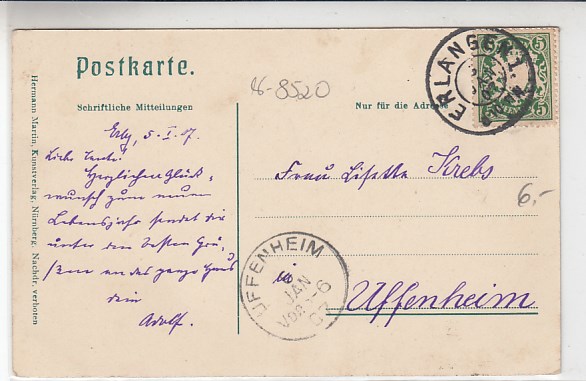 Postkarte.
W-8520
Schriftliche Mitteilungen
Nur für die Adresse
Erlg, 5. I. 07.
Liebe Tante!
Herzlichen Glück-
wunsch zum neuen
Lebensjahr sendet dir
unter den besten Grü-
ßen an das ganze Haus
dein
Adolf.
Frau Lisette Krebs
in
Uffenheim
6,-
ERLANGEN 1.
JAN
5
5
UFFENHEIM
6
JAN
07
Hermann Martin, Kunstverlag, Nürnberg. Nachdr. verboten